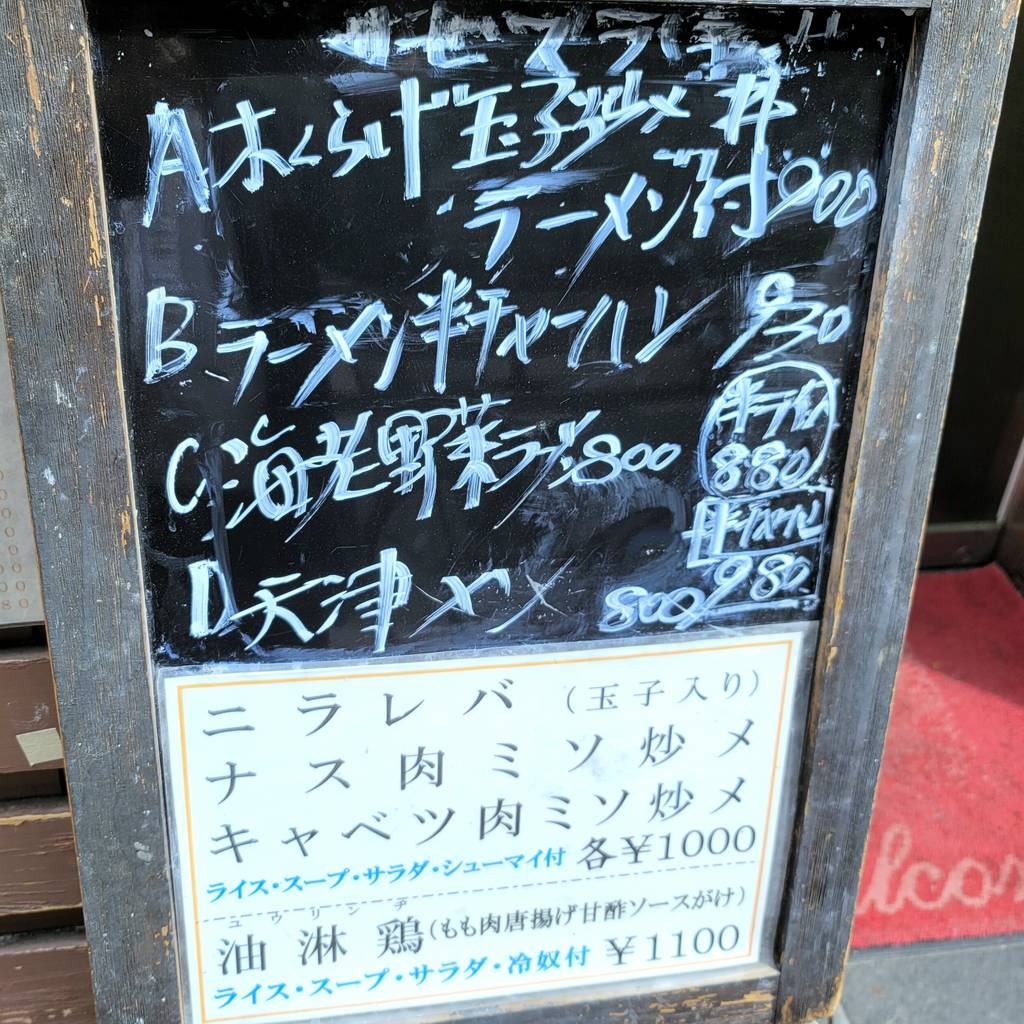 A 木くらげ玉子炒メ丼
ラーメン付 900
B ラーメン半チャーハン 930
C 海老野菜ラーメン 800
半ライス
880
D 天津メン 800
980
ニラレバ (玉子入り)
ナス肉ミソ炒メ
キャベツ肉ミソ炒メ
ライス・スープ・サラダ・シューマイ付 各¥1000
ユウリンヂ
油淋鶏(もも肉唐揚げ甘酢ソースがけ)
ライス・スープ・サラダ・冷奴付 ¥1100